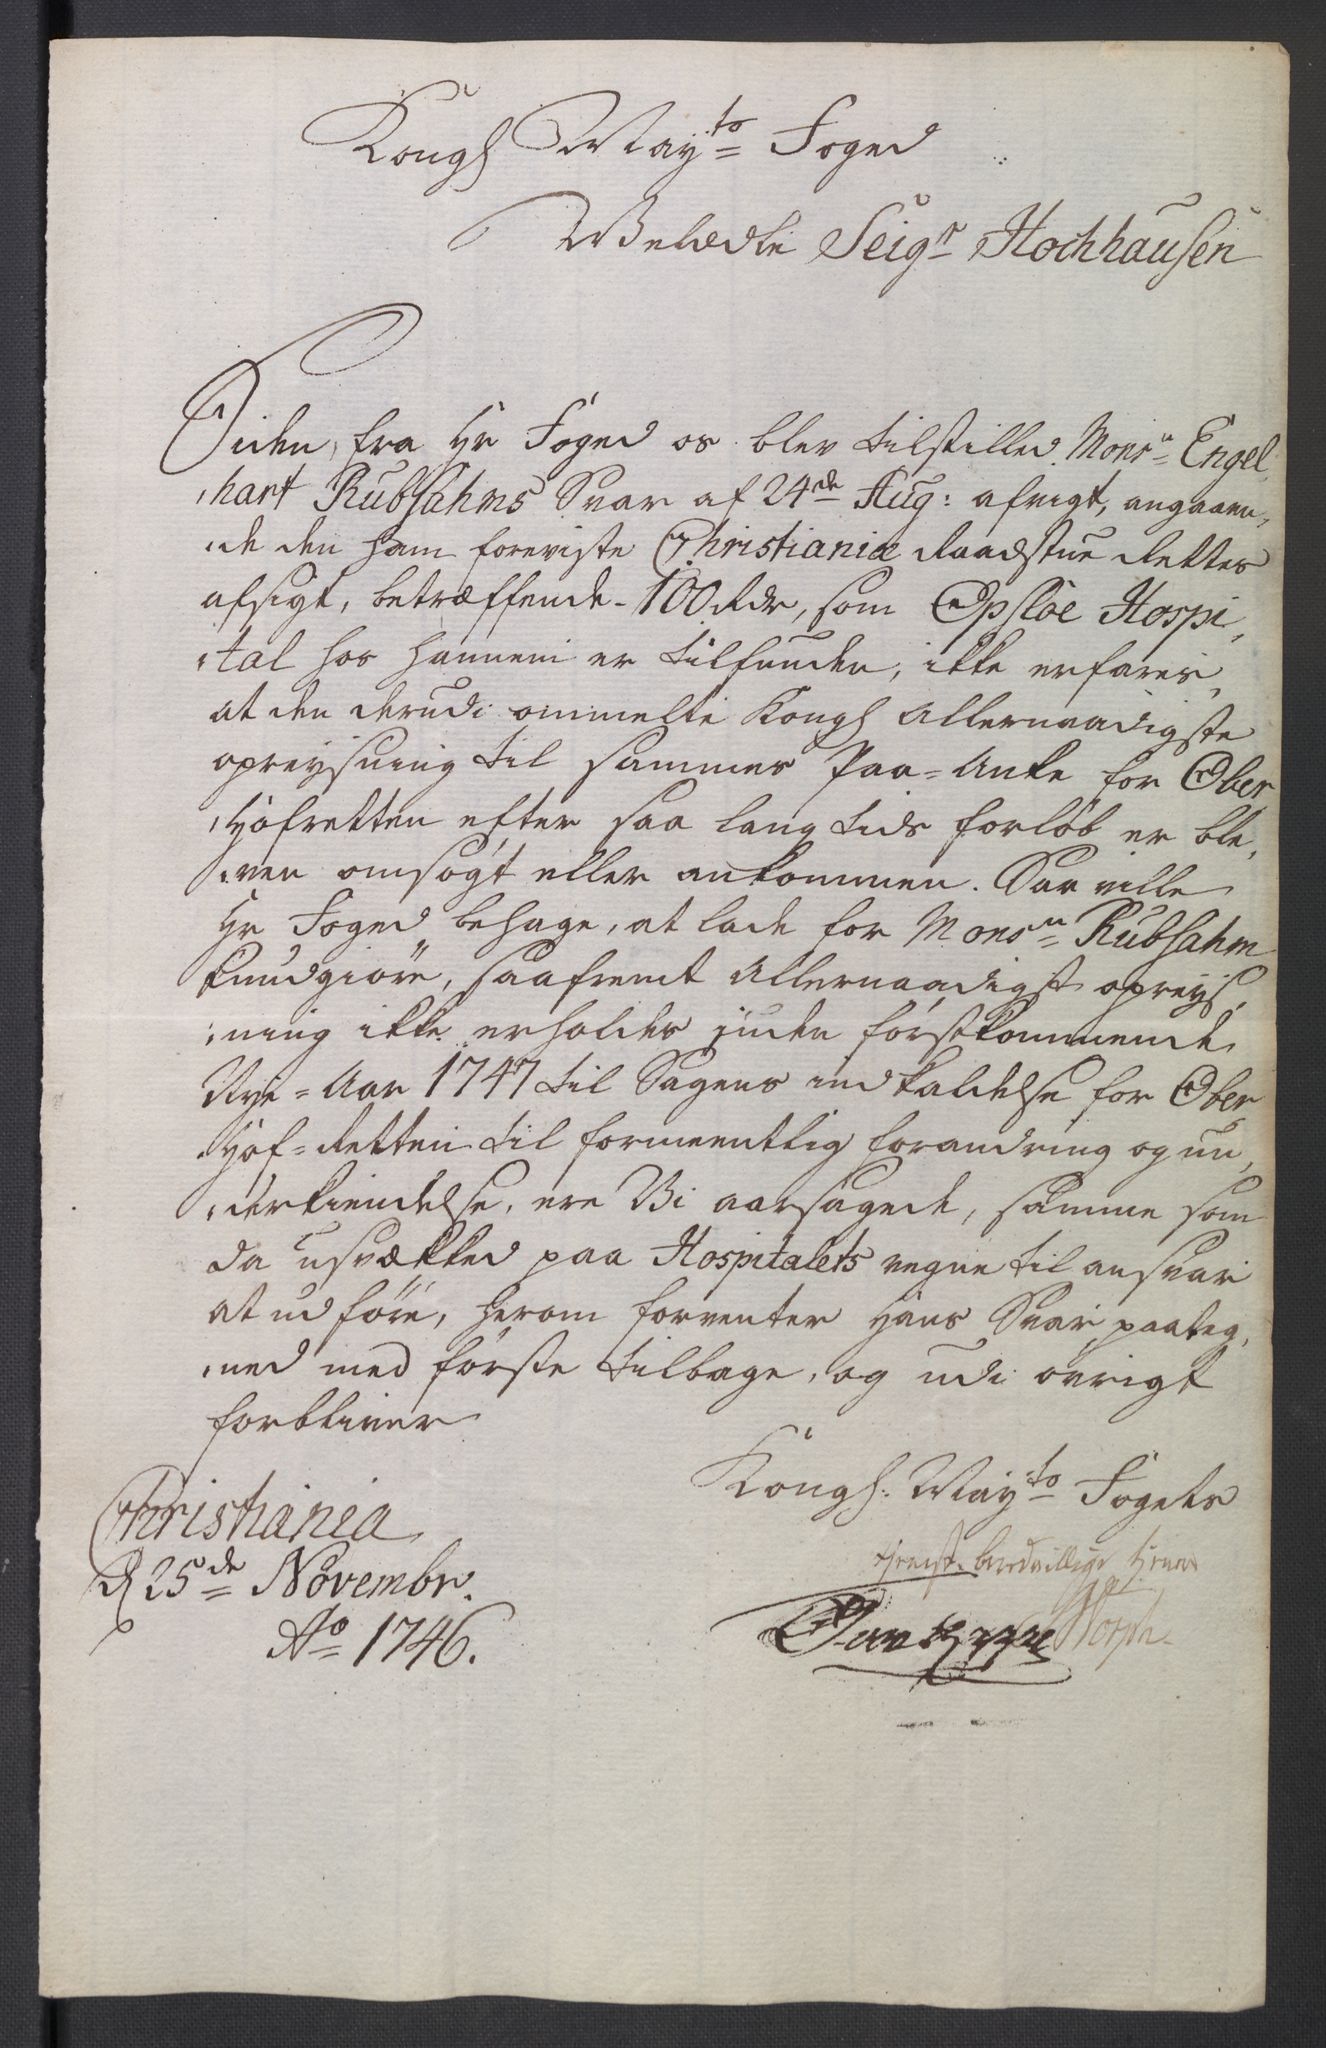 Kongl May:to Foged
WelEdle Seigr Hochhausen
Siden fra Hr Foged os blev tilstilled Monsr Engel
hart Rubsahms Svar af 24de Aug: afvigt, angaaen,
de den ham foreviste Christianiæ Raadstue Rettes
afsigt, betræffende 100 Rdr, som Opsloe Hospi,
tal hos hannem er tilfunden, ikke erfares,
at den derudi ommelte Kongl Allernaadigste
opreysning til sammes Paa-Anke for Ober
Hofretten efter saa lang tids forløb er ble,
ven omsøgt eller ankommen. Saa ville
Hr Foged behage, at lade for Monsr Rubsahm
kundgiøre, saafremt Allernaadigst opreys,
ning ikke erholdes inden førstkommende
Nye-Aar 1747 til Sagens indkaldelse for Ober
Hof-Retten til formeentlig forandring og un,
derkiendelse, ere Vi aarsagede, samme som
da usvækked paa Hospitalets vegne til ansvar
at udføre, herom forventer Hans Svar paateg,
ned med første tilbage, og udi øvrigt
forbliver
Kongl: May:to Fogets
Christiania
d 25de Novembr.
Ao 1746.
tienst-beredvillige tienere